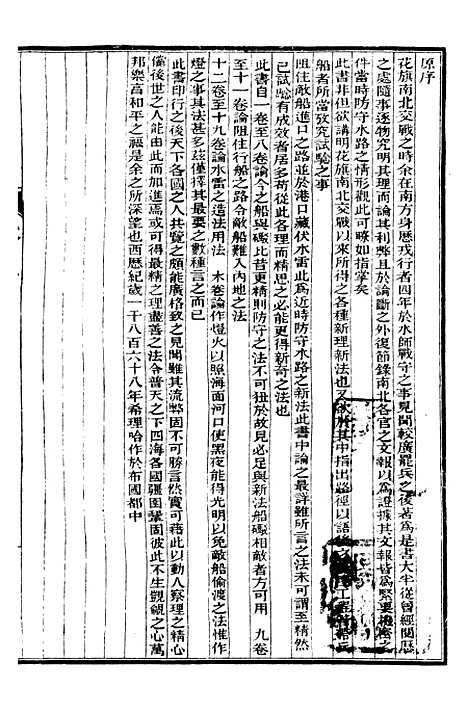 原序
花旗南北交戰之時余在南方身歷戎行者四年於水師戰守之事見聞較廣罷兵之後著為是書大半從曾經閱歷
之處隨事逐物究明其理而論其利弊且於論斷之外復節錄南北各官之文報以為證據其文報皆為緊要機密之
件當時防守水路之情形觀此可瞭如指掌矣
此書非但欲講明花旗南北交戰以來所得之各種新理新法也又欲於其中指出路徑以語後之
船者所當攷究試驗之事
阻住敵船進口之路並於港口藏伏水雷此為近時防守水路之新法此書中論之最詳雖所言之法未可謂至精然
已試驗有成效者居多苟從此各理而精思之必能更得新奇之法也
此書自一卷至八卷論今之船與礮比昔更精則防守之法不可狃於故見必足與新法船礮相敵者方可用 九卷
至十一卷論阻住行船之路令敵船難入內地之法
十二卷至十九卷論水雷之造法用法 末卷論作燈火以照海面河口使黑夜能得光明以免敵船偷渡之法惟作
燈之事其法甚多茲僅擇其最要之數種言之而已
此書印行之後天下各國之人共覽之頗能廣格致之見聞雖其流弊固不可勝言然實可藉此以動人察理之精心
儻後世之人能由此而加進焉或可得最精之理盡善之法令普天之下四海各國疆圉鞏固彼此不生覬覦之心萬
邦樂高和平之福是余之所深望也西歷紀歲一千八百六十八年希理哈作於布國都中